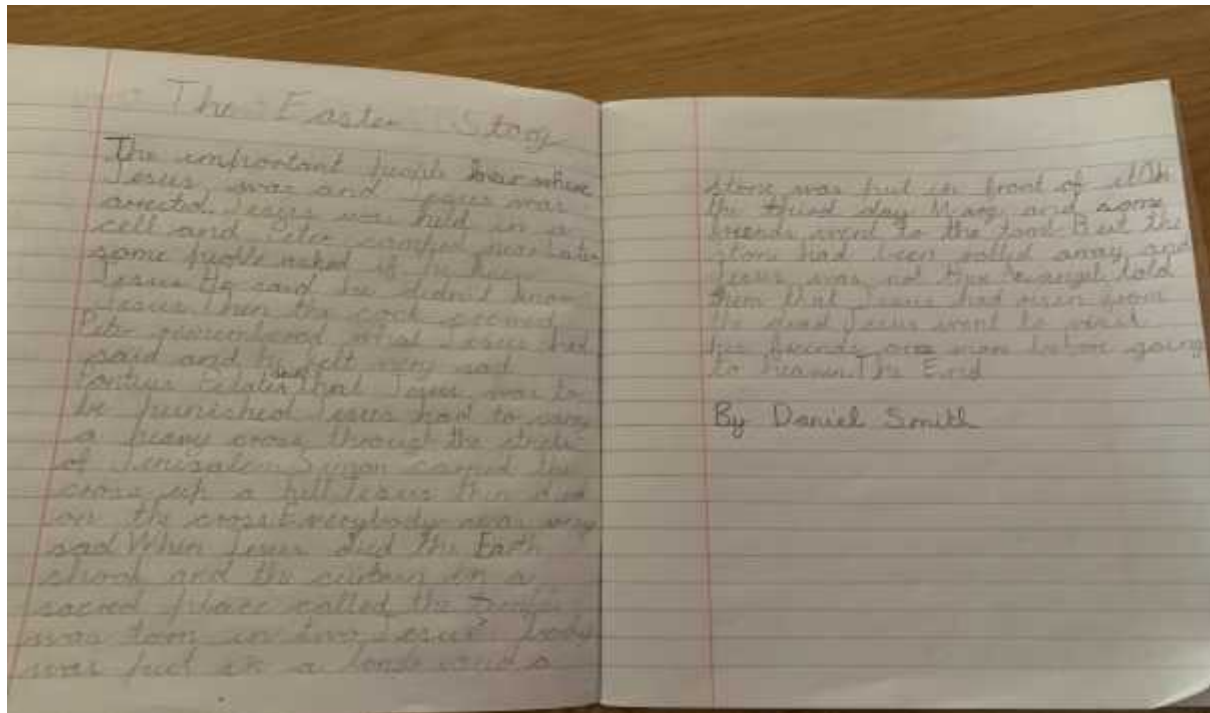 The Easter Story
The important people knew where
Jesus was and Jesus was
arrested. Jesus was held in a
cell and Peter camped near Later
some people asked if he knew
Jesus He said he didn't know
Jesus Then the cock crowed
Peter remembered what Jesus had
said and he felt very sad
Pontius Pilate that Jesus was to
be punished Jesus had to carry
a heavy cross through the streets
of Jerusalem Simon carried the
cross up a hill Jesus then died
on the cross Everybody was very
sad When Jesus died the Earth
shook and the curtain in a
sacred place called the temple
was torn in two Jesus' body
was put in a tomb and a
stone was put in front of it On
the third day Mary and some
friends went to the tomb But the
stone had been rolled away and
Jesus was not angel told
them that Jesus had risen from
the dead Jesus went to visit
his friends once more before going
to heaven The End
By Daniel Smith